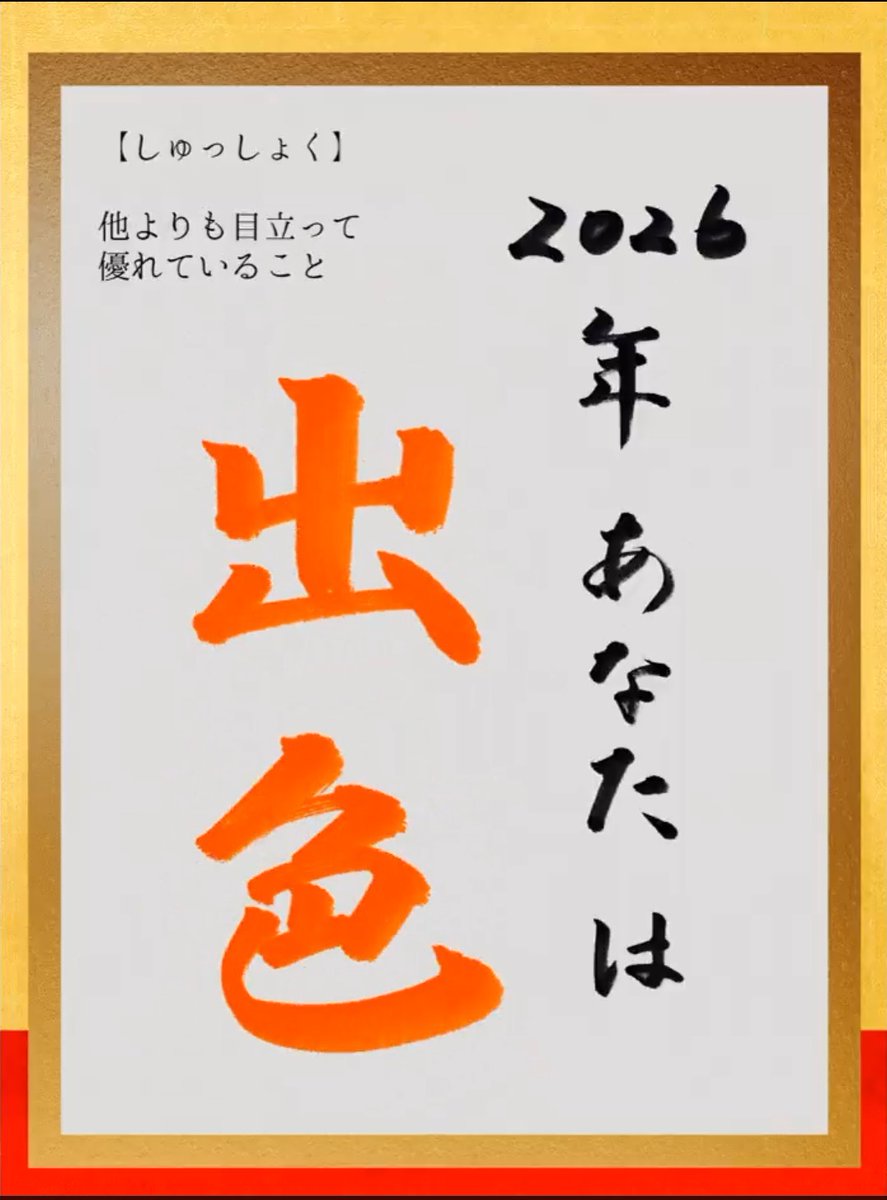 【しゅっしょく】
他よりも目立って
優れていること
2026年あなたは
出色